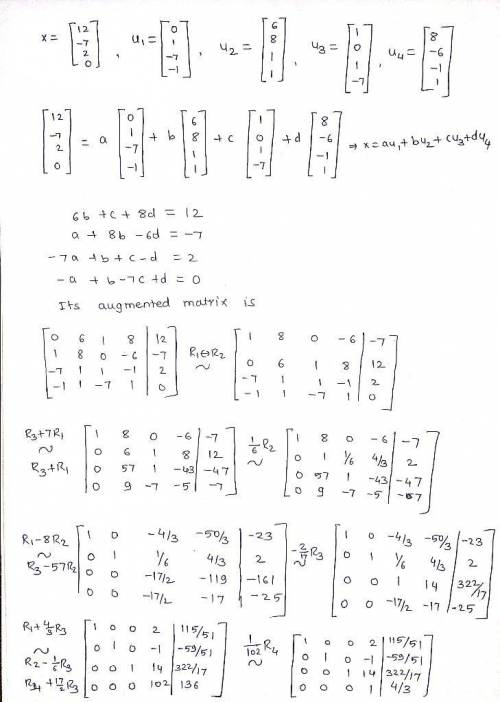 x = [12 -7 2 0] , u1 = [0 1 -7 -1] , u2 = [6 8 1 1] , u3 = [1 0 1 -7] , u4 = [8 -6 -1 1]
[12 -7 2 0] = a [0 1 -7 -1] + b [6 8 1 1] + c [1 0 1 -7] + d [8 -6 -1 1] ⇒ x = au1 + bu2 + cu3 + du4
6b + c + 8d = 12
a + 8b - 6d = -7
-7a + b + c - d = 2
-a + b - 7c + d = 0
Its augmented matrix is
[0 6 1 8 | 12
1 8 0 -6 | -7
-7 1 1 -1 | 2
-1 1 -7 1 | 0]
R1↔R2 ~
[1 8 0 -6 | -7
0 6 1 8 | 12
-7 1 1 -1 | 2
-1 1 -7 1 | 0]
R3+7R1 ~ R3+R1
[1 8 0 -6 | -7
0 6 1 8 | 12
0 57 1 -43 | -47
0 9 -7 -5 | -7]
1/6 R2 ~
[1 8 0 -6 | -7
0 1 1/6 4/3 | 2
0 57 1 -43 | -47
0 9 -7 -5]
R1-8R2 ~ R3-57R2
[1 0 -4/3 -50/3 | -23
0 1 1/6 4/3 | 2
0 0 -17/2 -119 | -161
0 0 -17/2 -17 | -25]
-2/17 R3 ~
[1 0 -4/3 -50/3 | -23
0 1 1/6 4/3 | 2
0 0 1 14 | 322/17
0 0 -17/2 -17 | -25]
R1+4/3 R3 ~ R2-1/6 R3
+17/2 R3
[1 0 0 2 | 115/51
0 1 0 -1 | -59/51
0 0 1 14 | 322/17
0 0 0 102 | 136]
1/102 R4 ~
[1 0 0 2 | 115/51
0 1 0 -1 | -59/51
0 0 1 14 | 322/17
0 0 0 1 | 4/3]